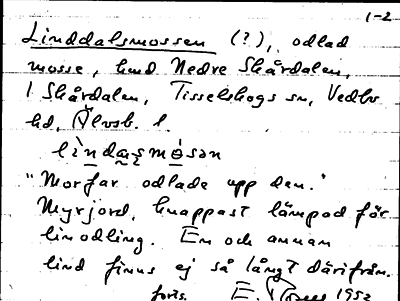 1-2
Linddalsmossen (?), odlad
mosse, hmd Nedre Skårdalen,
1 Skårdalen, Tisselskogs sn, Vedbo
hd, Älvsb. l.
lìndaɷsmósən
"Morfar odlade upp den."
Myrjord, knappast lämpad för
linodling. En och annan
lind finns ej så långt därifrån.
forts. E. 1952